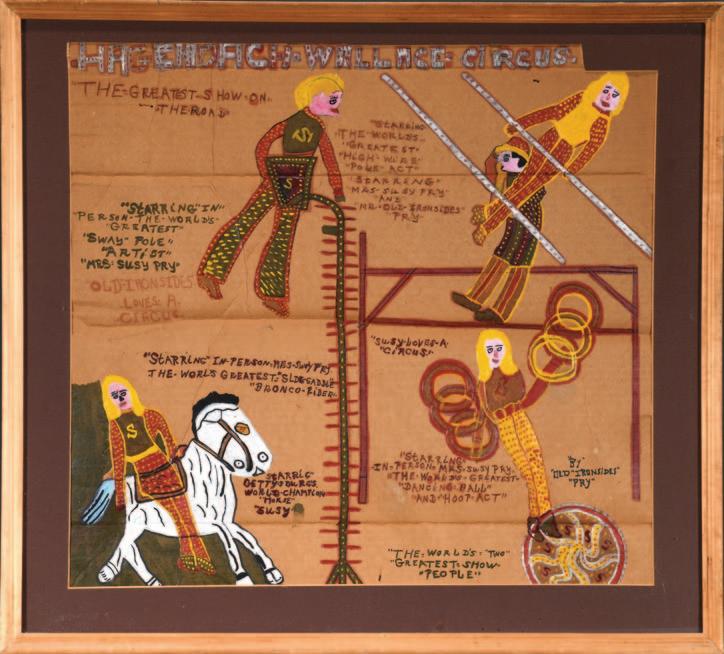 HAGENBACH-WALLACE-CIRCUS-
THE-GREATEST-SHOW-ON-
-THE ROAD
"STARRING
THE-WORLDS-
"GREATEST-
"HIGH-WIRE
"POLE-ACT"
"STARRING"
MRS-SUSY PRY-
AND
"MR-OLD-IRONSIDES"
PRY"
"STARRING"IN"
PERSON-THE-WORLD'S-
"GREATEST"
"SWAY-POLE"
"ARTIST"
"MRS-SUSY PRY"
"OLD-IRONSIDES"
LOVES-A-
CIRCUS-
TSY
S
"SUSY-LOVES-A-
"CIRCUS-"
"STARRING"IN-PERSON-MRS-SUSY PRY
THE-WORLDS GREATEST-"SIDE-SADDLE
"BRONCO-RIDER-
S
"STARRIG"
GETTYSBURGS-
WORLD-CHAMPION
"HORSE"
"SUSY"
"STARRING-
IN-PERSON-MRS-SUSY PRY-
"THE-WORLD'S-GREATEST-
"DANCING-BALL"
"AND-HOOP-ACT"
"BY"
"OLD-IRONSIDES"
"PRY"
"THE-WORLD'S-"TWO"
"GREATEST-SHOW-
"PEOPLE"